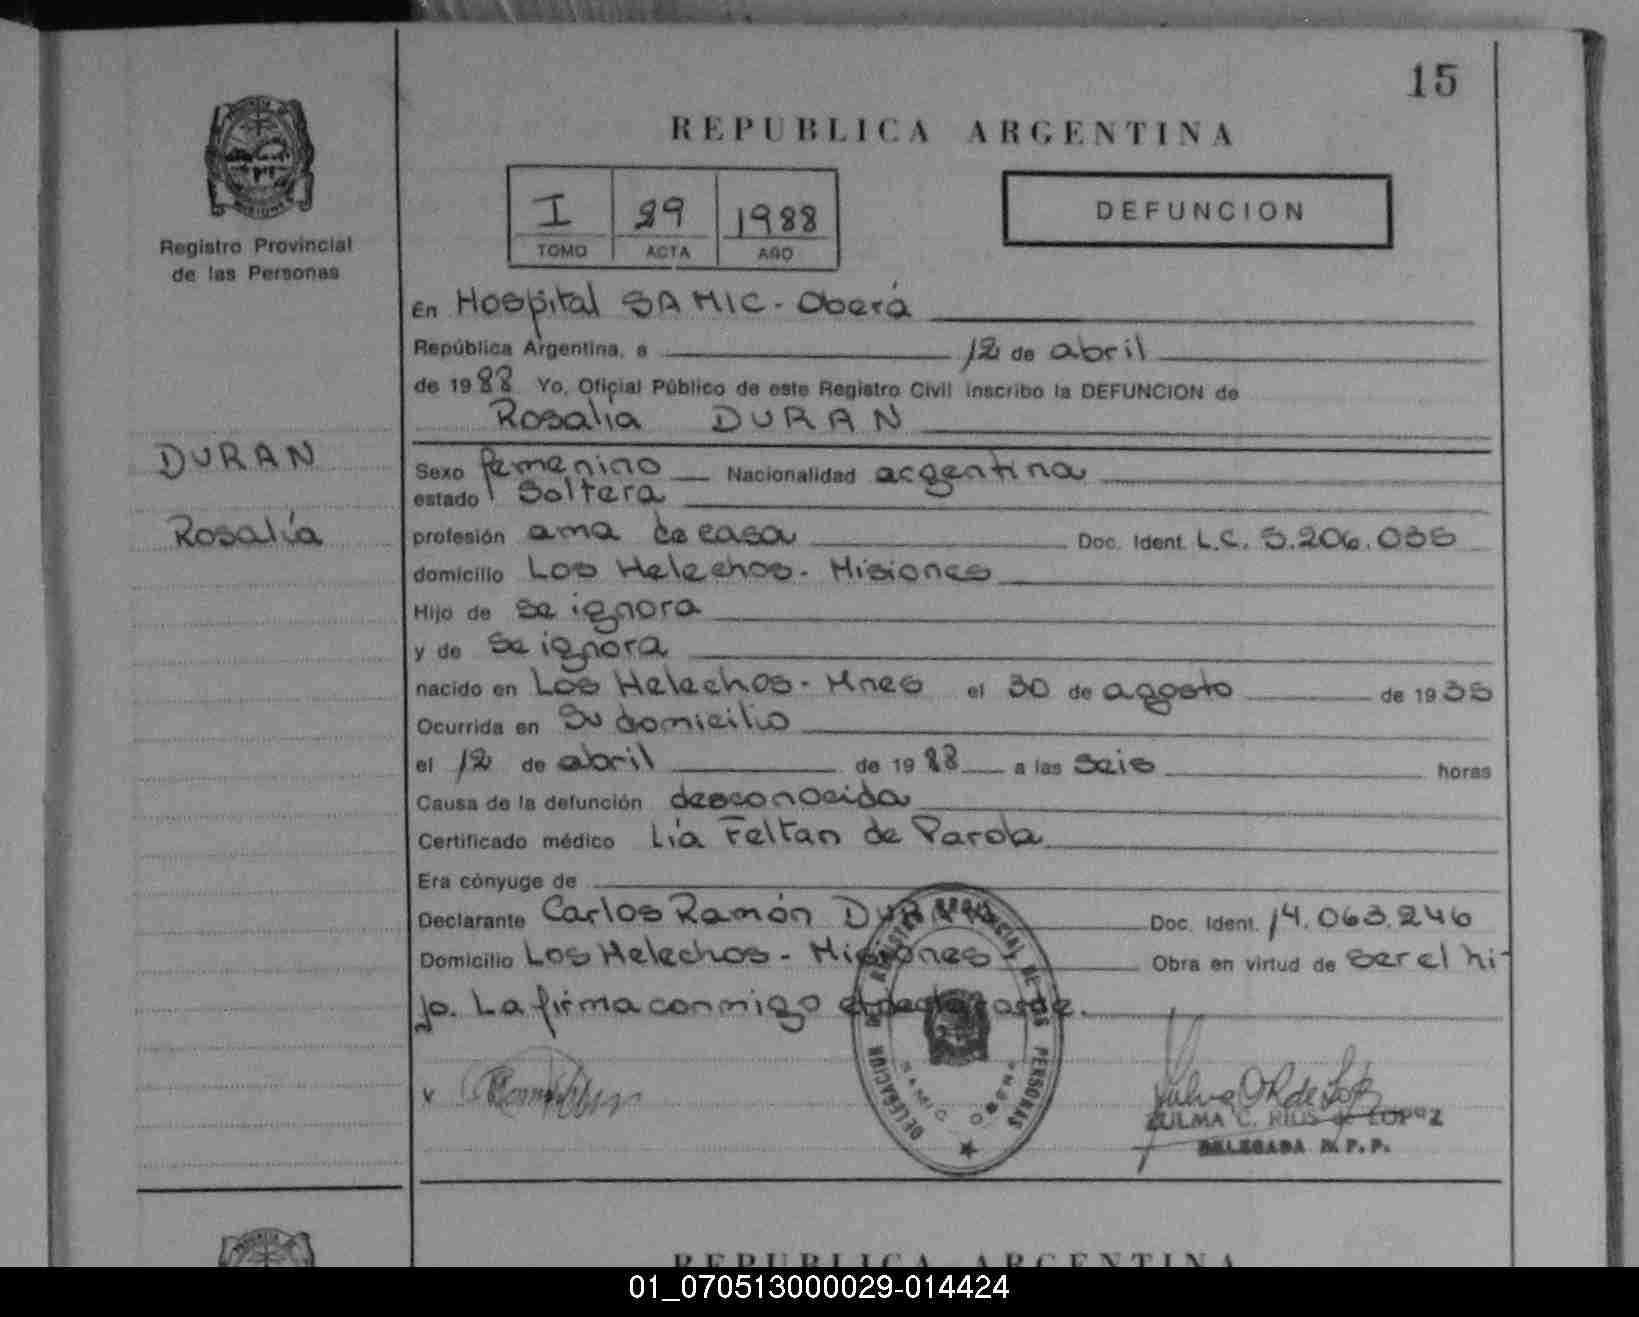 15
REPUBLICA ARGENTINA
I 29 1988
TOMO ACTA AÑO
DEFUNCION
Registro Provincial
de las Personas
En Hospital SAMIC - Oberá
República Argentina, a 12 de abril
de 1988 Yo, Oficial Público de este Registro Civil inscribo la DEFUNCION de
Rosalia DURAN
DURAN
Rosalía
Sexo femenino Nacionalidad argentina
estado Soltera
profesión ama de casa Doc. Ident. L.C. 5.206.035
domicilio Los Helechos - Misiones
Hijo de se ignora
y de se ignora
nacido en Los Helechos - Mnes el 30 de agosto de 1935
Ocurrida en Su domicilio
el 12 de abril de 1988 a las seis horas
Causa de la defunción desconocida
Certificado médico Lía Feltan de Parola
Era cónyuge de
Declarante Carlos Ramón DURAN Doc. Ident. 14.063.246
Domicilio Los Helechos - Misiones Obra en virtud de ser el hi-
jo. La firma conmigo el declarante.
DELEGACION DEL REGISTRO PROVINCIAL DE LAS PERSONAS
SAMIC OBERA
ZULMA C. RIOS de LOPEZ
DELEGADA R.P.P.
REPUBLICA ARGENTINA
01_070513000029-014424